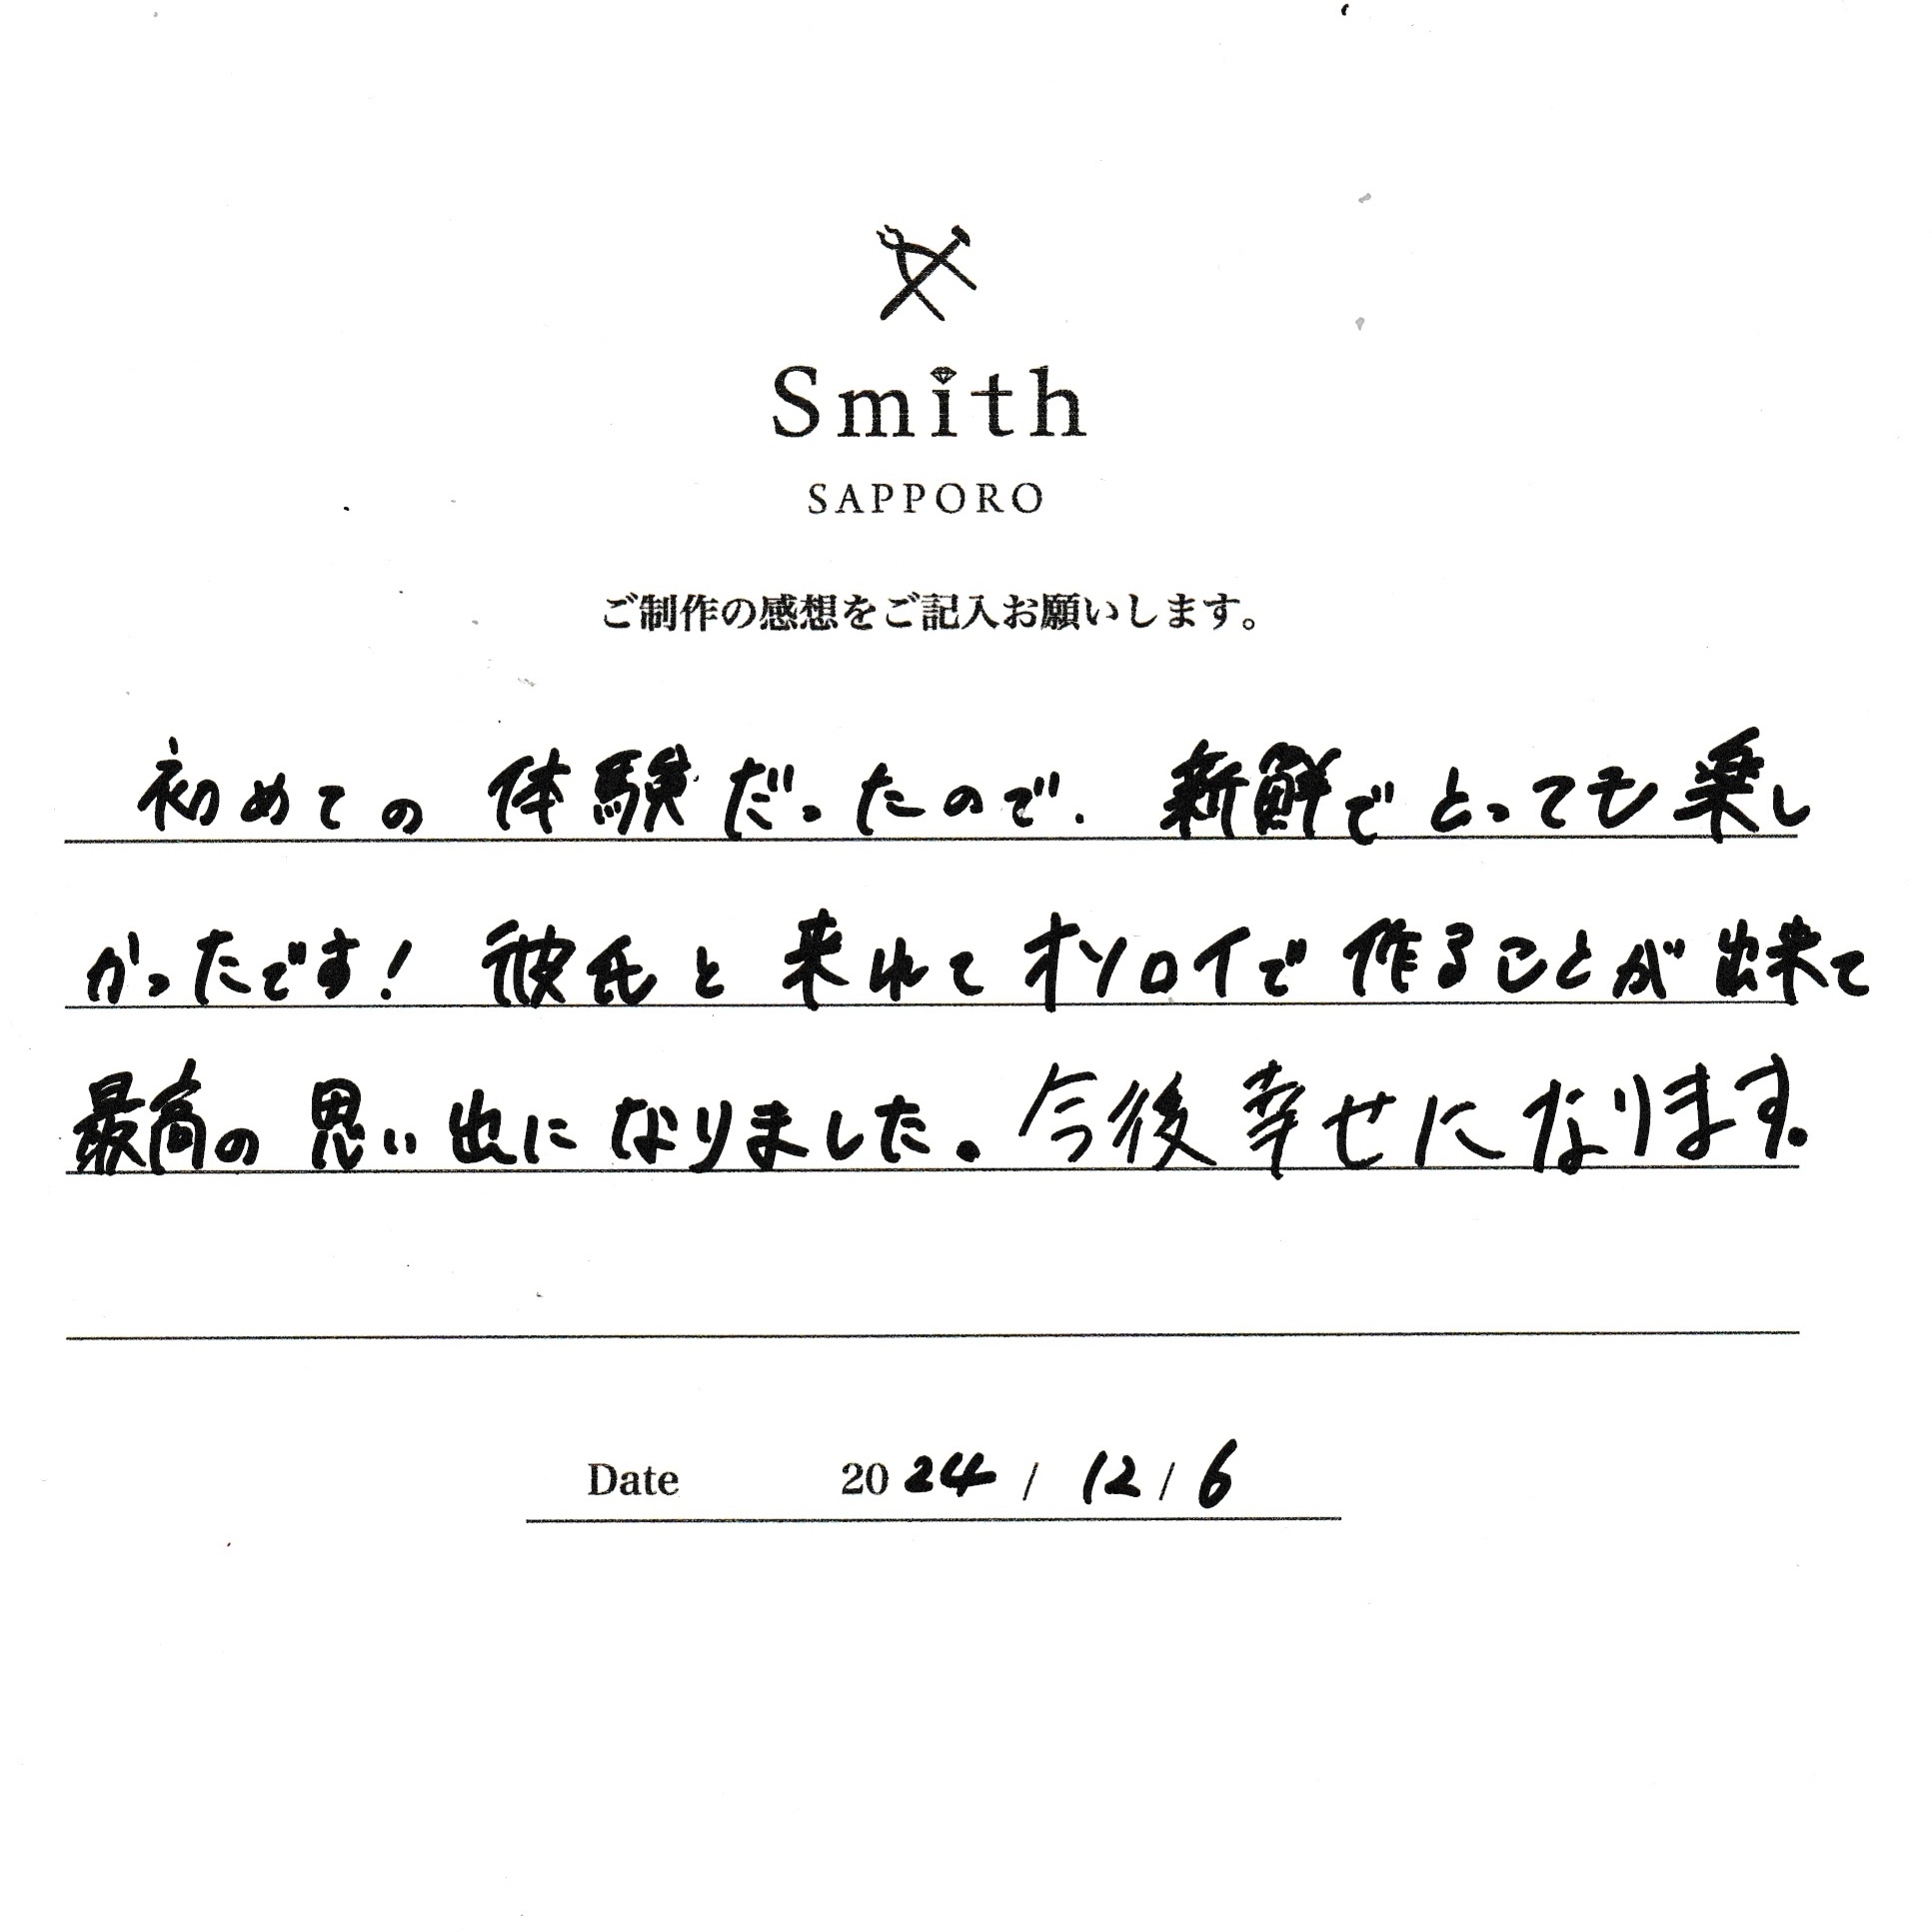 Smith
SAPPORO
ご制作の感想をご記入お願いします。
初めての 体験だったので. 新鮮で とっても 楽し
かったです! 彼氏と 来れて オソロイで 作ることが 出来て
最高の 思い出に なりました。今後 幸せに なります。
Date 2024 / 12 / 6